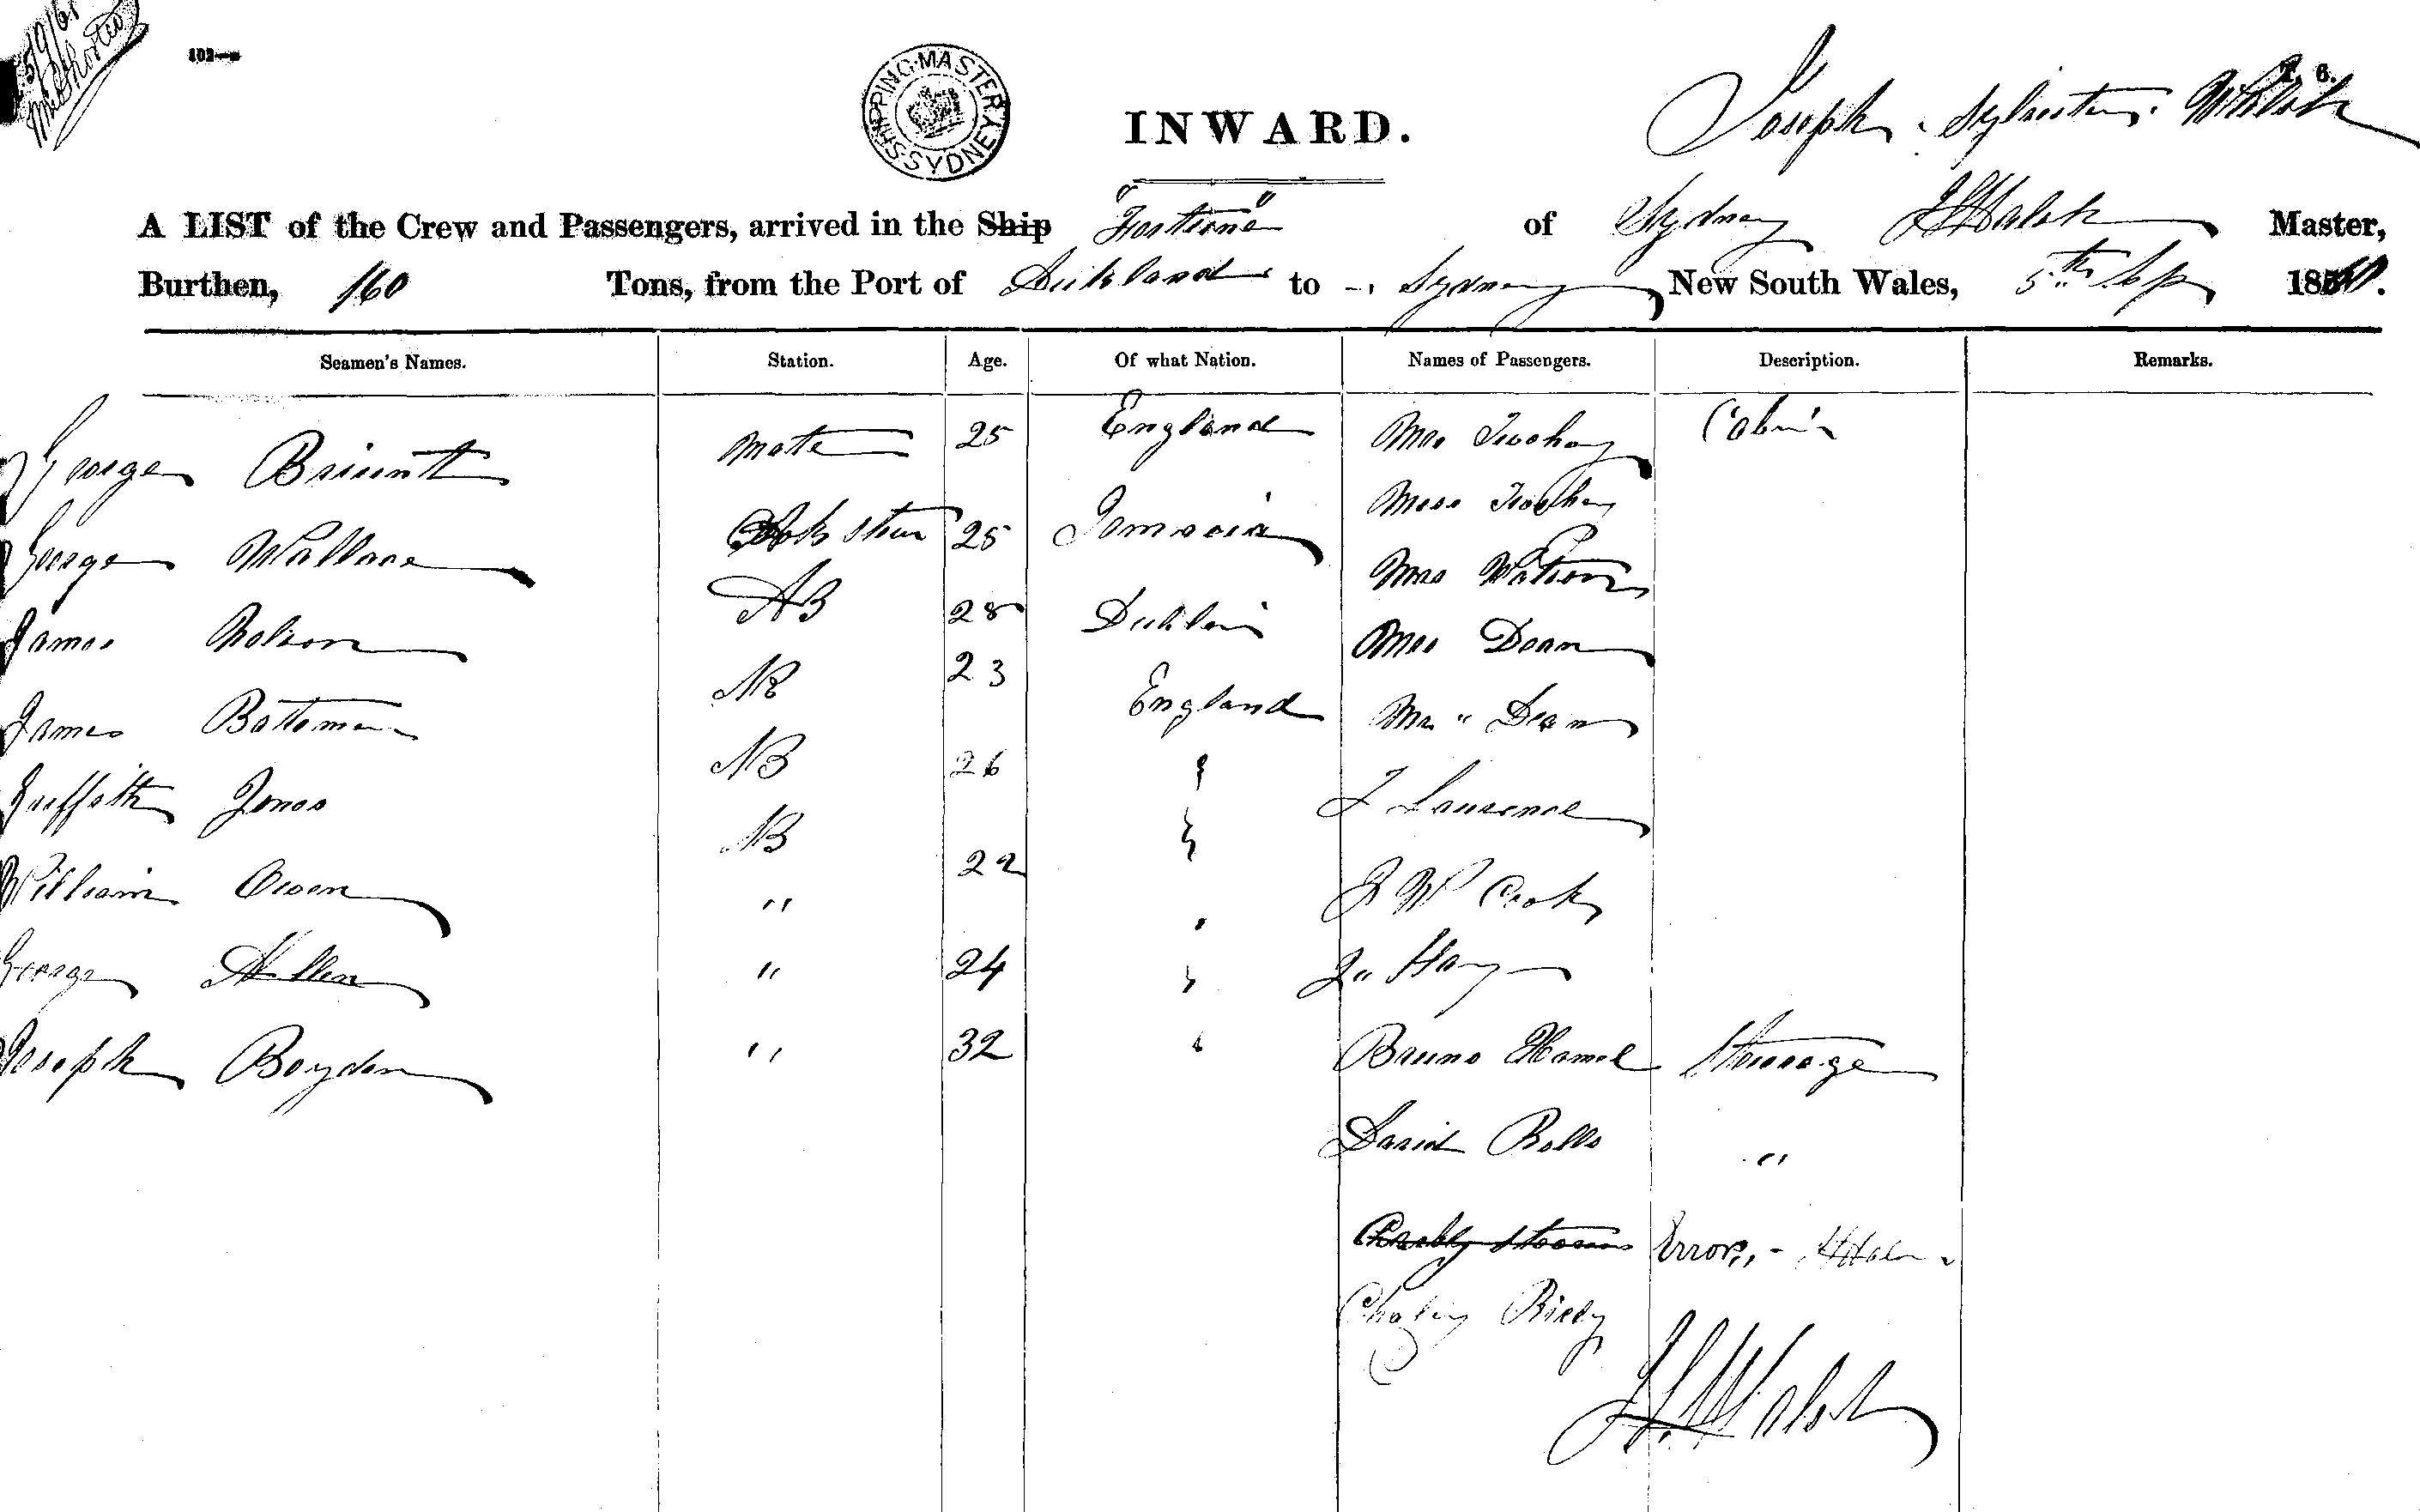 5/9/61
103—
SHIPPING MASTER SYDNEY
INWARD.
T. 6.
Joseph Sylvester Walsh
A LIST of the Crew and Passengers, arrived in the Ship "Fortune" of Sydney J S Walsh Master,
Burthen, 160 Tons, from the Port of Aukland to Sydney, New South Wales, 5th Sep 1861.
Seamen's Names. Station. Age. Of what Nation. Names of Passengers. Description. Remarks.
George Mate 25 England Mrs Twohay Cabin
George Wallace Cook Stew 25 Jamaica Miss Twohay
James AB 28 Dublin Mrs Watson
James Bateman AB 23 England Mrs Dean
Griffith Jones AB 26 " Mr Dean
William Owen AB 22 " J Laurence
George Allen " 24 " J W Cook
Joseph Boyden " 32 " J Hay
Bruno Hamel Steerage
David Rolls "
Error,
Charley Rieley
J. S. Walsh